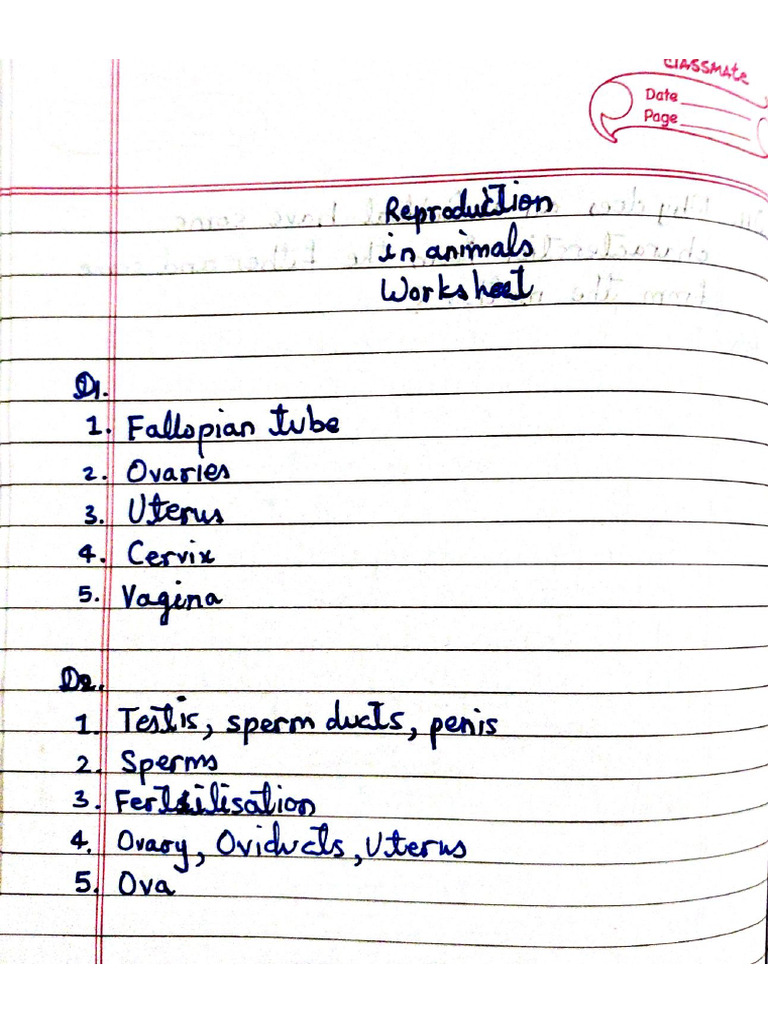 classmate
Date
Page
Reproduction
in animals
Worksheet
Q1.
1. Fallopian tube
2. Ovaries
3. Uterus
4. Cervix
5. Vagina
Q2.
1. Testis, sperm ducts, penis
2. Sperms
3. Fertilisation
4. Ovary, Oviducts, Uterus
5. Ova